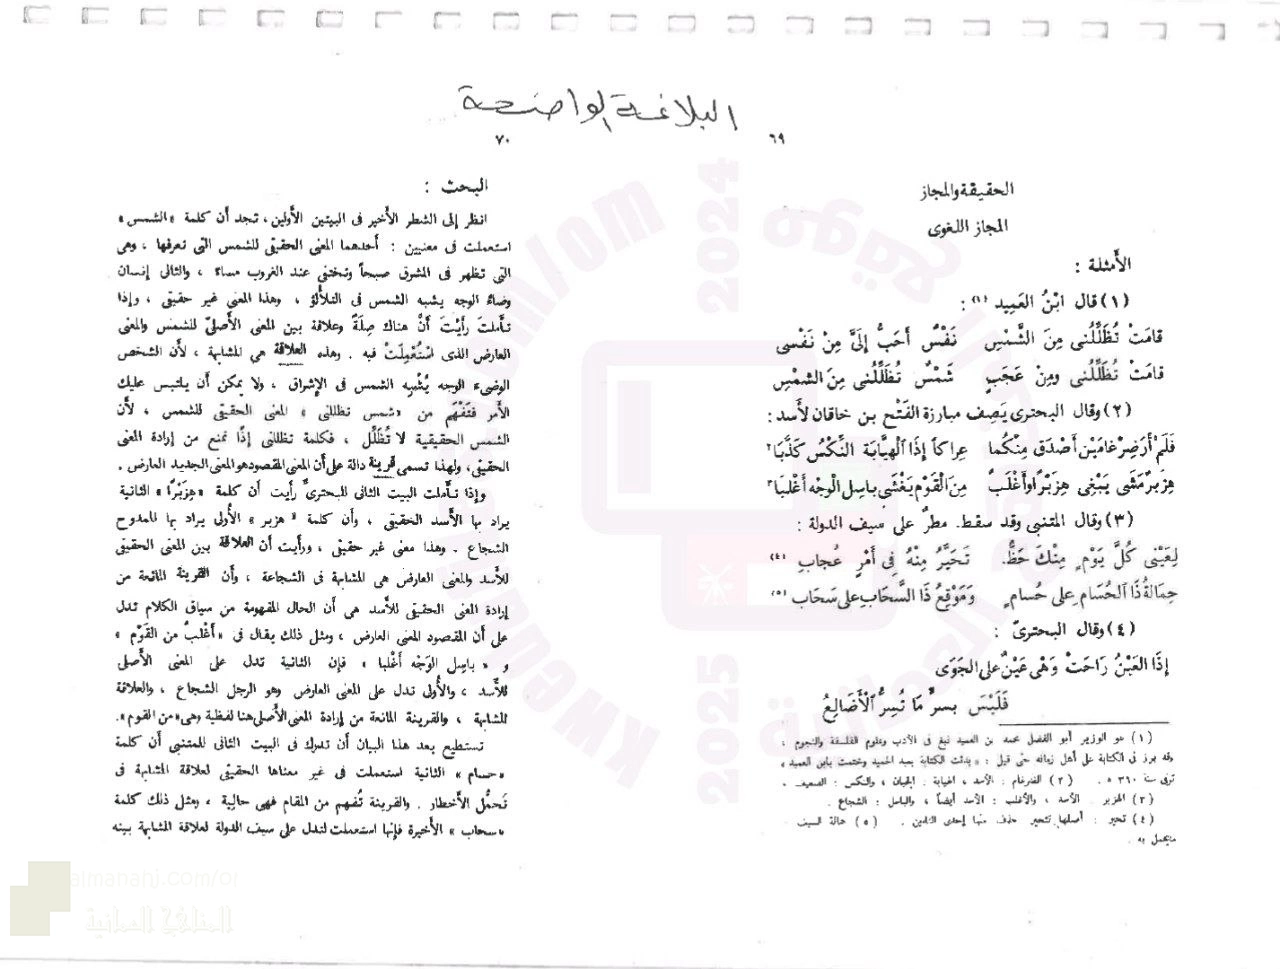 البلاغة الواضحة
٦٩
الحقيقة والمجاز
المجاز اللغوى
الأمثلة :
(١) قال ابْنُ العَمِيد (١) :
قامَتْ تُظَلِّلُنى مِنَ الشَّمْسِ نَفْسٌ أَحَبُّ إِلىَّ مِنْ نَفْسى
قامَتْ تُظَلِّلُنى ومِنْ عَجَبٍ شَمْسٌ تُظَلِّلُنى مِنَ الشمْسِ
(٢) وقال البحترى يَصِف مبارزة الفَتْح بن خاقان لأسد :
فَلَمْ أَرَ ضِرْغامَيْنِ أَصْدَقَ مِنْكُما عِراكاً إِذَا الْهَيَّابَةُ النِّكْسُ كَذَّبَا ٢
هِزَبْرٌ مَشَى يَبْغِى هِزَبْرًا وأَغْلَبٌ مِنَ الْقَوْمِ يَغْشَى بَاسِلَ الْوَجْهِ أَغْلَبَا ٣
(٣) وقال المتنبى وقد سقط مطرٌ على سيف الدولة :
لِعَيْنى كُلَّ يَوْمٍ مِنْكَ حَظٌّ تَحَيَّرُ مِنْهُ فِى أَمْرٍ عُجابِ (٤)
حِمَالَةُ ذَا الْحُسَامِ عَلى حُسامٍ وَمَوْقِعُ ذَا السَّحَابِ على سَحَاب (٥)
(٤) وقال البحترىّ :
إِذَا العَيْنُ رَاحَتْ وَهْىَ عَيْنٌ على الجَوَى
فَلَيْسَ بِسِرٍّ مَا تُسِرُّ الْأَضَالِعُ
(١) هو الوزير أبو الفضل محمد بن العميد نبغ فى الأدب وعلوم الفلسفة والنجوم ،
وقد برز فى الكتابة على أهل زمانه حتى قيل : « بدئت الكتابة بعبد الحميد وختمت بابن العميد »
توفى سنة ٣٦٠ ه . (٢) الضرغام : الأسد ، الهيابة : الجبان ، والنكس : الضعيف .
(٣) الهزبر : الأسد ، والأغلب : الأسد أيضاً ، والباسل : الشجاع .
(٤) تحير : أصلها تتحير حذف منها إحدى التاءين . (٥) حمالة السيف
ما يحمل به .
٧٠
البحث :
انظر إلى الشطر الأخير فى البيتين الأولين ، تجد أن كلمة « الشمس »
استعملت فى معنيين : أحدهما المعنى الحقيقى للشمس التى تعرفها ، وهى
التى تظهر فى المشرق صبحاً وتختفى عند الغروب مساءً ، والثانى إنسان
وضاءُ الوجه يشبه الشمس فى التلألؤ ، وهذا المعنى غير حقيقى ، وإذا
تأملتَ رأيْتَ أنَّ هناك صِلَةً وعلاقة بين المعنى الأصلىّ للشمس والمعنى
العارض الذى اسْتُعْمِلَتْ فيه . وهذه العلاقة هى المشابهة ، لأن الشخص
الوضىء الوجه يُشْبِه الشمس فى الإشراق ، ولا يمكن أن يلتبس عليك
الأمر فتَفْهَم من « شمس تظللنى » المعنى الحقيقى للشمس ، لأن
الشمس الحقيقية لا تُظَلِّل ، فكلمة تظللنى إذًا تمنع من إرادة المعنى
الحقيقى ، ولهذا تسمى قرينة دالة على أن المعنى المقصود هو المعنى الجديد العارض .
وإذا تأملت البيت الثانى للبحترىّ رأيت أن كلمة « هِزَبْرًا » الثانية
يراد بها الأسد الحقيقى ، وأن كلمة « هزبر » الأُولى يراد بها الممدوح
الشجاع . وهذا معنى غير حقيقى ، ورأيت أن العلاقة بين المعنى الحقيقى
للأسد والمعنى العارض هى المشابهة فى الشجاعة ، وأن القرينة المانعة من
إرادة المعنى الحقيقى للأسد هى أن الحال المفهومة من سياق الكلام تدل
على أن المقصود المعنى العارض ، ومثل ذلك يقال فى « أَغْلَبُ من القَوْم »
و « باسِل الوَجْه أَغْلبا » فإن الثانية تدل على المعنى الأصلى
للأسد ، والأُولى تدل على المعنى العارض وهو الرجل الشجاع ، والعلاقة
المشابهة ، والقرينة المانعة من إرادة المعنى الأصلى هنا لفظية وهى « من القوم » .
تستطيع بعد هذا البيان أن تدرك فى البيت الثانى للمتنبى أن كلمة
« حسام » الثانية استعملت فى غير معناها الحقيقى لعلاقة المشابهة فى
تَحَمُّل الأَخطار . والقرينة تُفهم من المقام فهى حالِية ، ومثل ذلك كلمة
« سحاب » الأخيرة فإنها استعملت لتدل على سيف الدولة لعلاقة المشابهة بينه
almanahj.com/om
موقع المناهج العمانية
2024
2025
almanahj.com/om
المناهج العمانية